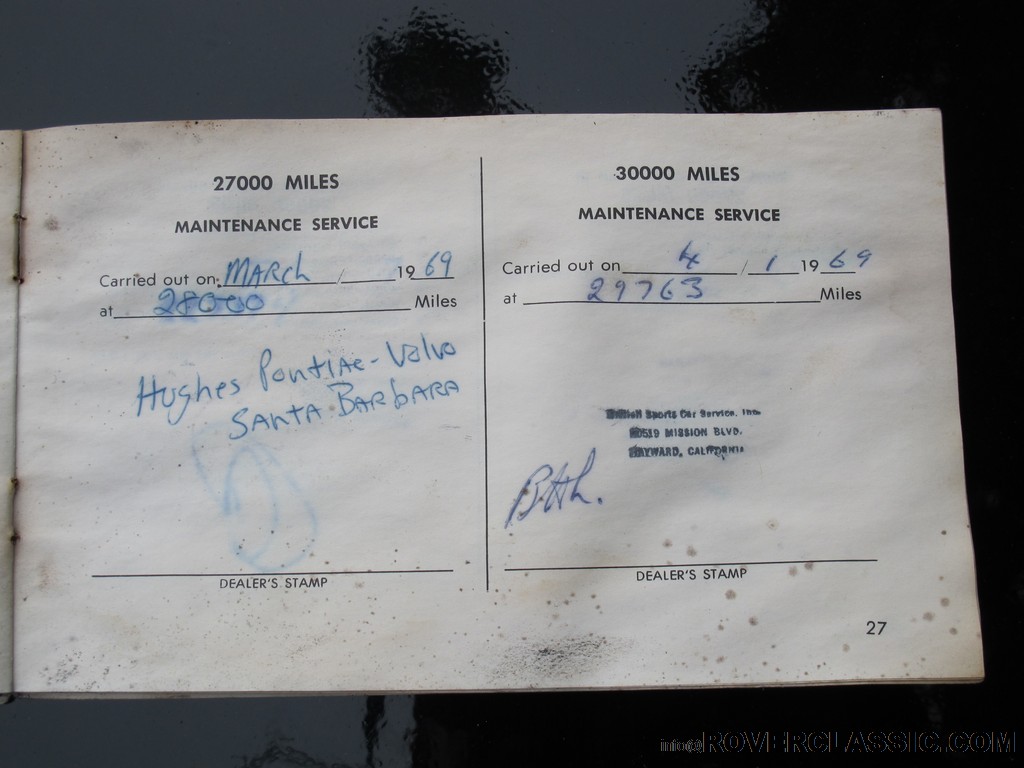 27000 MILES
MAINTENANCE SERVICE
Carried out on MARCh / 1969
at 28000 Miles
Hughes Pontiac-Volvo
SANTA BARbARA
DEALER'S STAMP
30000 MILES
MAINTENANCE SERVICE
Carried out on 4 / 1 1969
at 29763 Miles
Sports Car Service, Inc.
MISSION BLVD.
HAYWARD, CALIFORNIA
DEALER'S STAMP
27
info@ROVERCLASSIC.COM